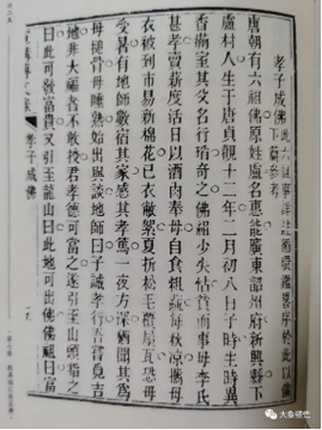 孝子成佛 此六祖事詳註
序於此以備下篇參考
唐朝有六祖佛原姓盧名惠能廣東韶州府新興縣下
盧村人生于唐貞觀十二年二月初八日子時生時異
香滿室其父名行瑫奇之佛祖少失怙貧而事母李氏
甚孝賣薪度活日以酒肉奉母自食粗蔬每秋涼攜母
衣被到市易新棉花已衣敝絮夏折松毛蓋屋瓦恐母
受暑有地師數宿其家感其孝篤一夜方深猶聞其爲
母搥骨母睡熟始出與談地師曰子誠孝行吾嘗覓吉
地非大福者不敢授君孝德可當之遂引至山頭指之
曰此可發富貴又引至龍山曰此地可出佛佛祖曰富
孝子成佛
大象頓悟